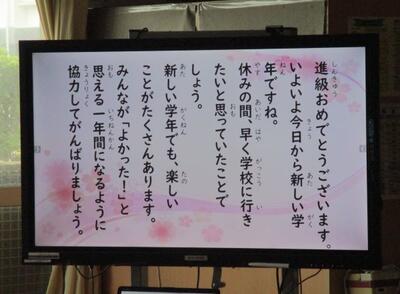 進級おめでとうございます。
いよいよ今日から新しい学
年ですね。
休みの間、早く学校に行き
たいと思っていたことで
しょう。
新しい学年でも、楽しい
ことがたくさんあります。
みんなが「よかった！」と
思える一年間になるように
協力してがんばりましょう。